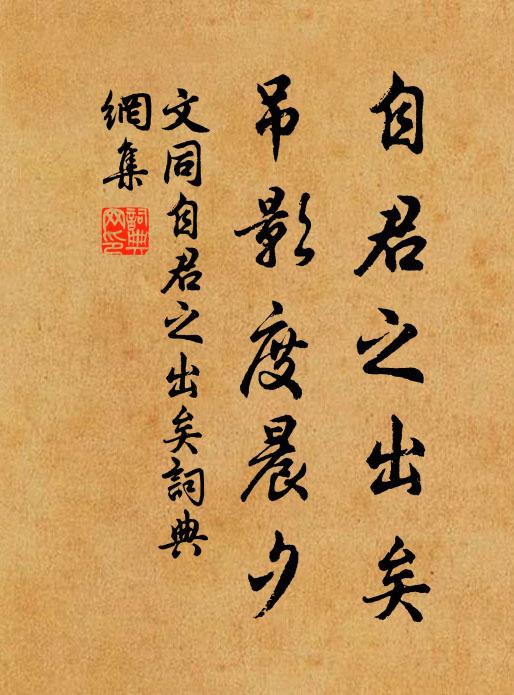 自君之出矣
吊影度晨夕
文同自君之出矣詞典
網集
詞典
网印